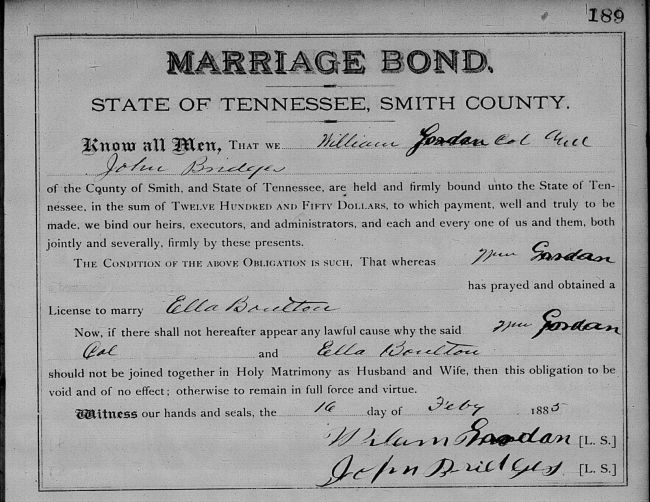 189
MARRIAGE BOND.
STATE OF TENNESSEE, SMITH COUNTY.
Know all Men, THAT WE William Gordan Col And
John Bridges
of the County of Smith, and State of Tennessee, are held and firmly bound unto the State of Ten-
nessee, in the sum of TWELVE HUNDRED AND FIFTY DOLLARS, to which payment, well and truly to be
made, we bind our heirs, executors, and administrators, and each and every one of us and them, both
jointly and severally, firmly by these presents.
THE CONDITION OF THE ABOVE OBLIGATION IS SUCH, That whereas Wm Gordan
has prayed and obtained a
License to marry Ella Boulton
Now, if there shall not hereafter appear any lawful cause why the said Wm Gordan
Col and Ella Boulton
should not be joined together in Holy Matrimony as Husband and Wife, then this obligation to be
void and of no effect; otherwise to remain in full force and virtue.
Witness our hands and seals, the 16 day of Feby 1885
Wilam Gordan [L. S.]
John Bridges [L. S.]